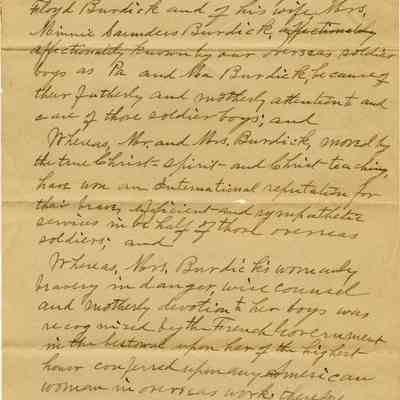 Floyd Burdick and of his wife Mrs.
Minnie Saunders Burdick, affectionately
affectionately known by our overseas soldier
boys as Pa and Ma Burdick, because of
their fatherly and motherly attention to and
care of those soldier boys; and
Whereas, Mr. and Mrs. Burdick, moved by
the true Christ-spirit and Christ-teaching,
have won an International reputation for
their brave, efficient and sympathetic
services in behalf of those overseas
soldiers; and
Whereas, Mrs. Burdick's womanly
bravery in danger, wise counsel
and motherly devotion to her boys was
recognized by the French Government
in the bestowal upon her of the highest
honor conferred upon any American
woman in overseas work; therefore